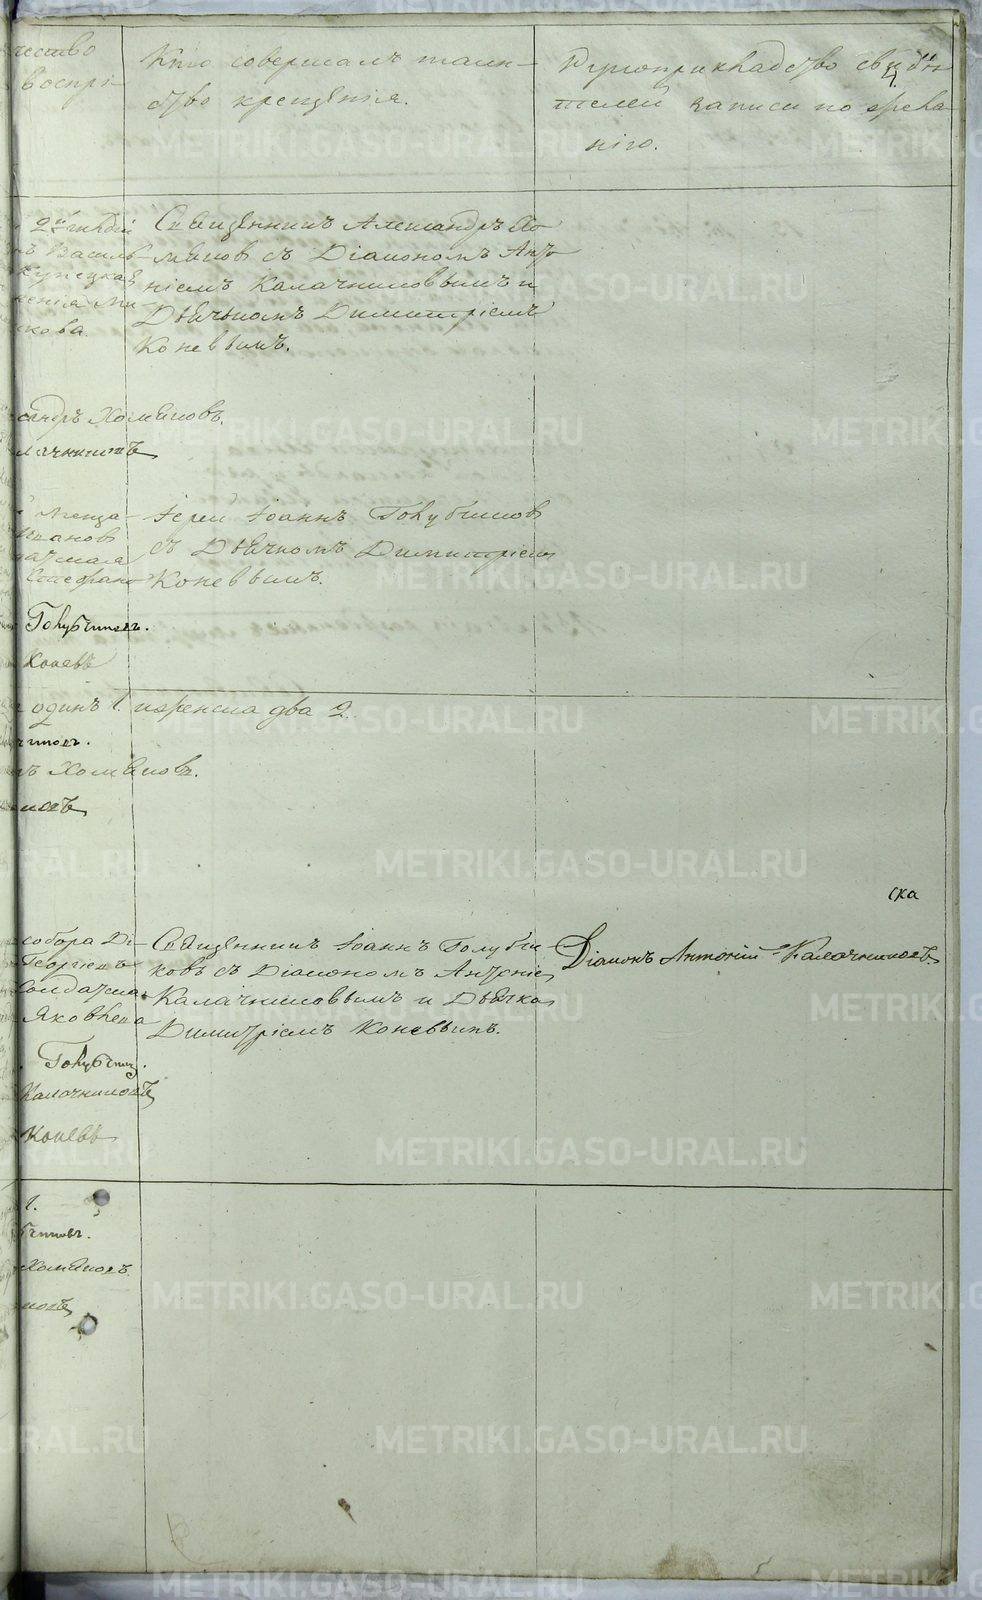 чество
воспрі-
Кто совершалъ таин-
ство крещенія.
Рукоприкладство свидѣ-
телей записи по жела-
нію.
2й гильдіи
Василь-
Купецкая
Священникъ Александръ Хо-
мяковъ съ Діакономъ Анто-
ніемъ Калачниковымъ и
Дьячкомъ Димитріемъ
Коневымъ.
кова.
сандръ Хомяковъ.
лачниковъ
Іерей Іоаннъ Голубчиковъ
съ Дьячкомъ Димитріемъ
Коневымъ.
Стефано
Голубчиковъ.
Коневъ
одинъ 1. женска два 2.
чиковъ.
ъ Хомяковъ.
ковъ
ска
собора Ді-
Георгіевъ
Солдатска
Яковлева
Священникъ Іоаннъ Голубчи-
ковъ съ Діакономъ Антоніемъ
Калачниковымъ и Дьячко
Димитріемъ Коневымъ.
Діаконъ Антоній Калачниковъ
Голубчик.
Калачниковъ
Коневъ
1.
бчиковъ.
Хомяковъ.
ковъ
METRIKI.GASO-URAL.RU